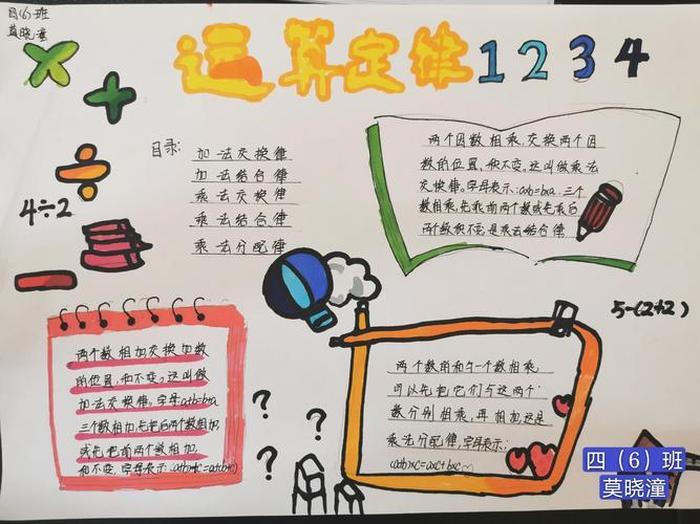 四(6)班
莫晓潼
运算定律1234
目录:
加法交换律
加法结合律
乘法交换律
乘法结合律
乘法分配律
4÷2
两个因数相乘,交换两个因
数的位置,积不变。这叫做乘法
交换律。字母表示:a×b=b×a.三个
数相乘,先乘前两个数或先乘后
两个数积不变是乘法结合律
5-(2+2)
两个数相加交换加数
的位置,和不变。这叫做
加法交换律。字母a+b=b+a
三个数相加,先把后两个数相加,
或先把前两个数相加,
和不变,字母表示:(a+b)+c=a+(b+c)
? ? ?
两个数的和与一个数相乘,
可以先把它们与这两个
数分别相乘,再相加.这是
乘法分配律,字母表示:
(a+b)×c=a×c+b×c
四(6)班
莫晓潼